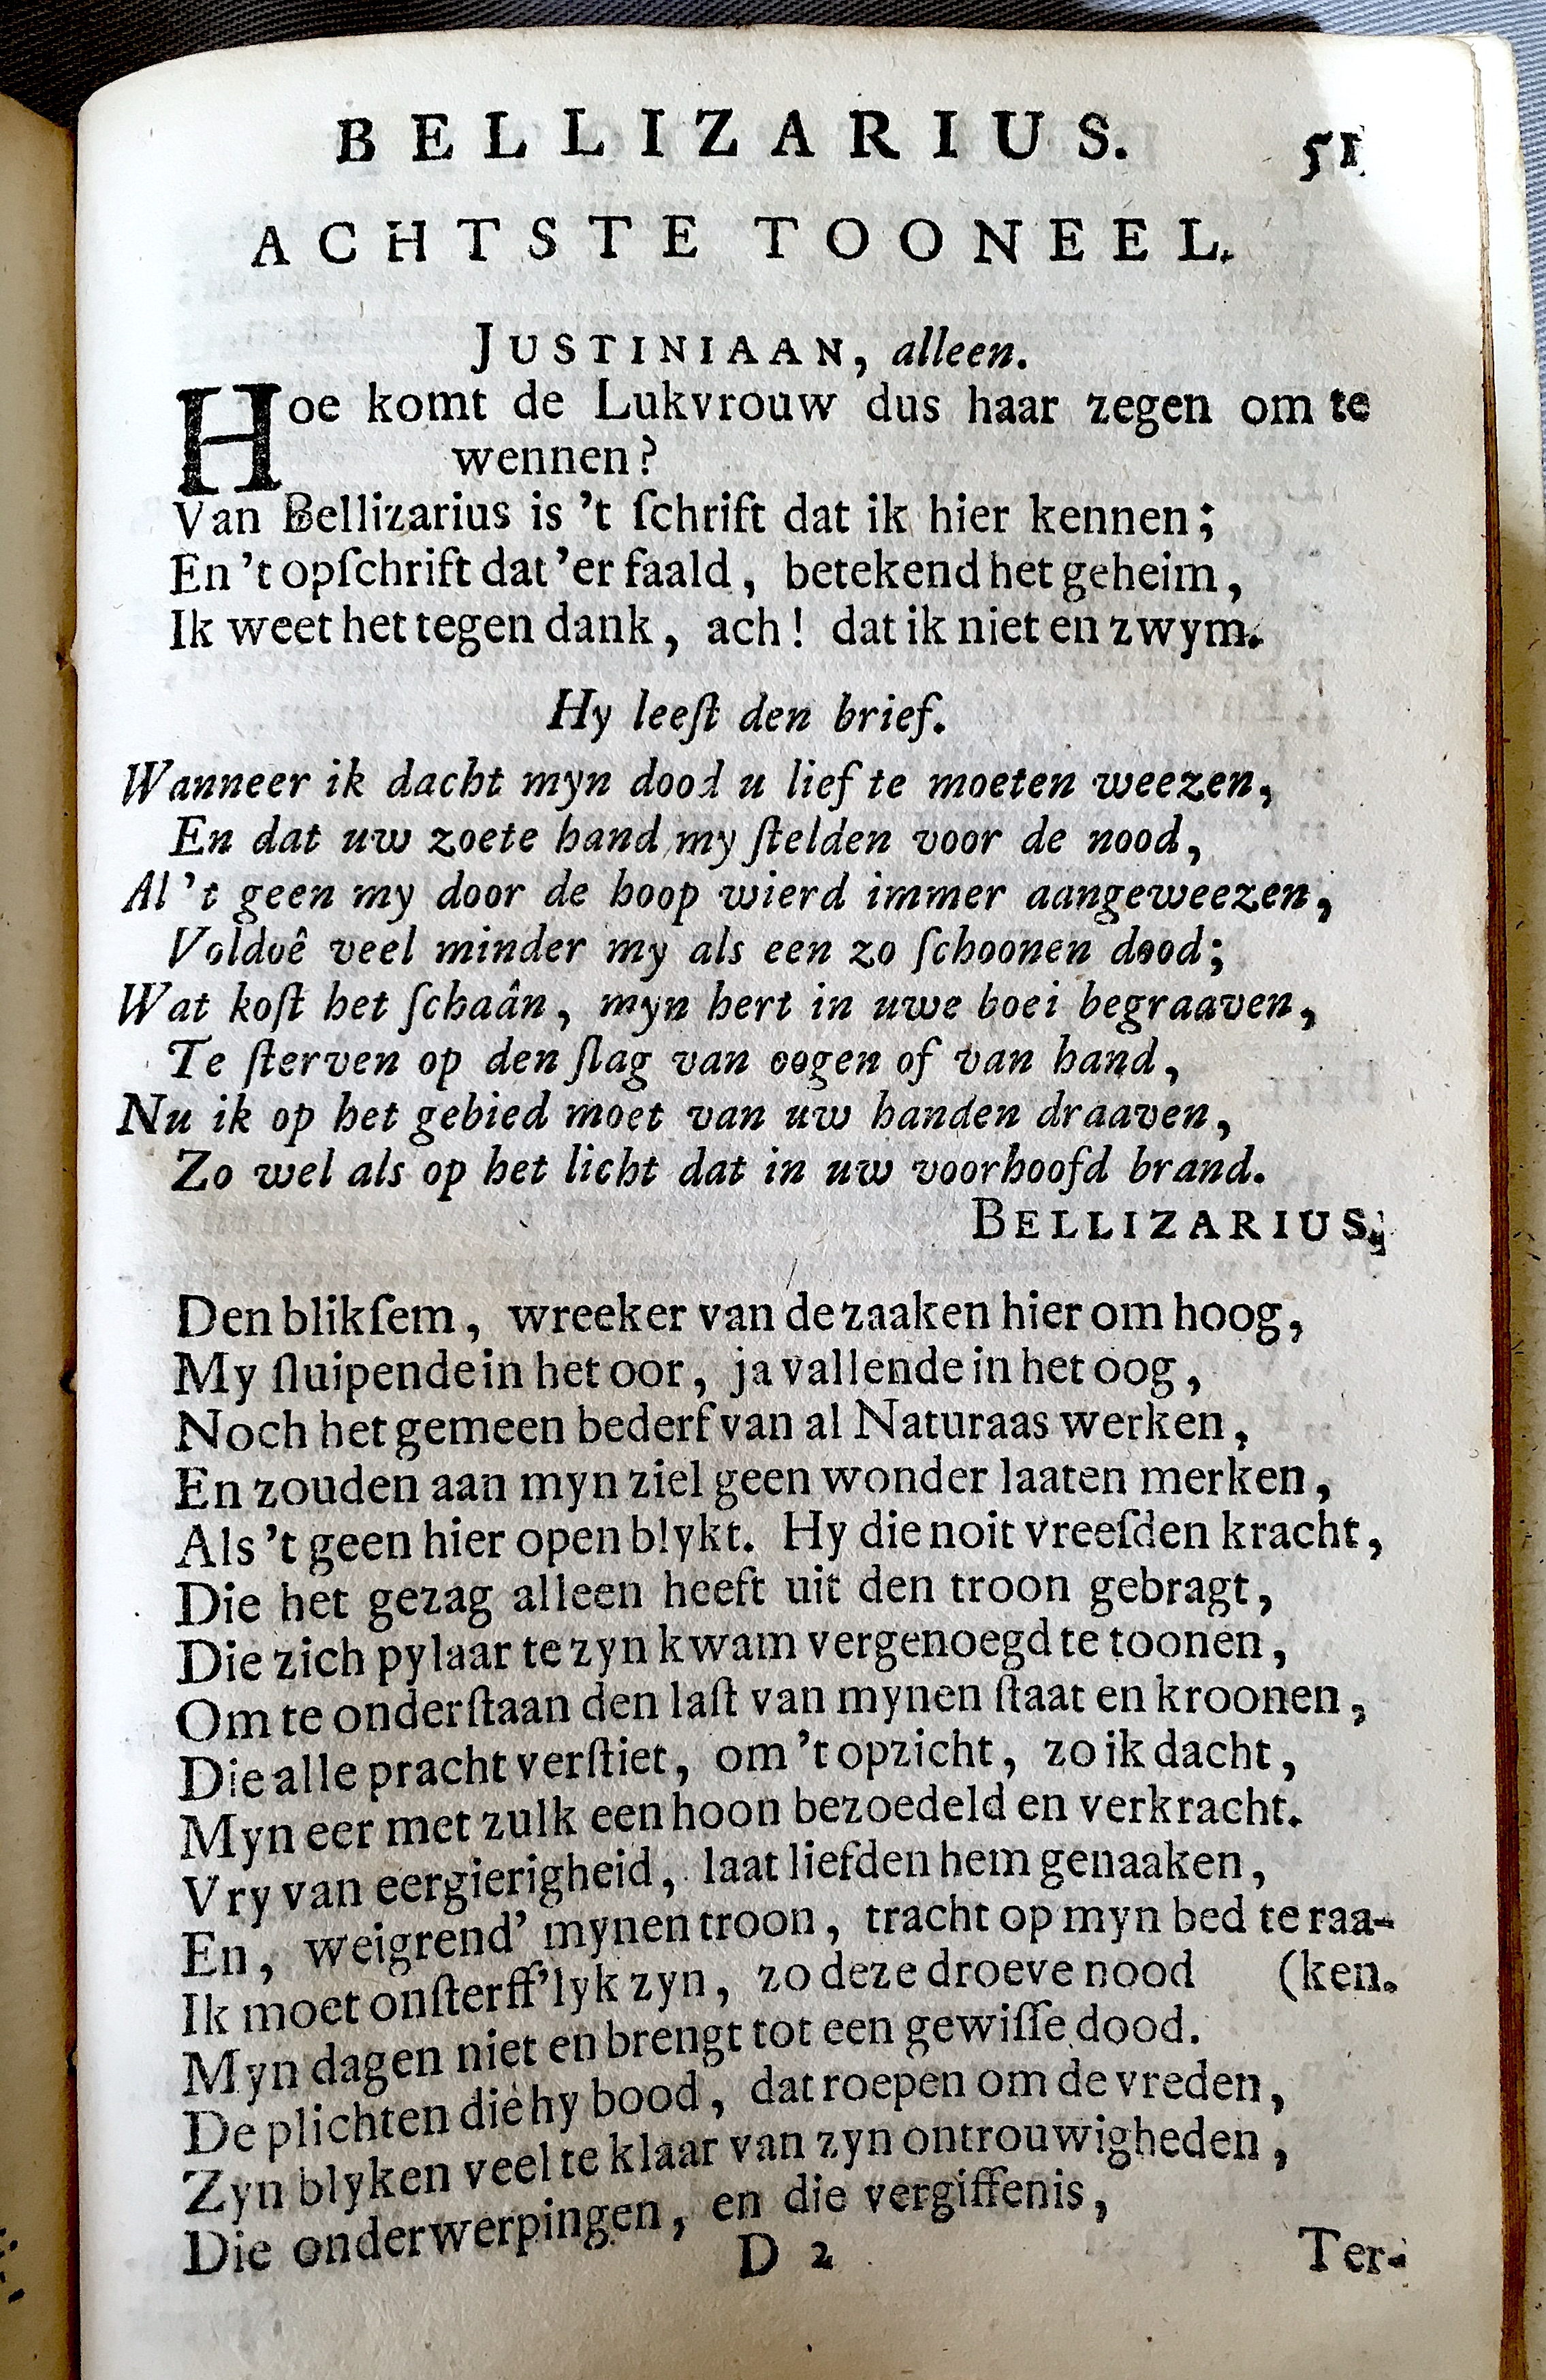 BELLIZARIUS. 51
ACHTSTE TOONEEL.
JUSTINIAAN, alleen.
Hoe komt de Lukvrouw dus haar zegen om te
wennen?
Van Bellizarius is 't ſchrift dat ik hier kennen;
En 't opſchrift dat 'er faald, betekend het geheim,
Ik weet het tegen dank, ach! dat ik niet en zwym.
Hy leeſt den brief.
Wanneer ik dacht myn dood u lief te moeten weezen,
En dat uw zoete hand my ſtelden voor de nood,
Al 't geen my door de hoop wierd immer aangeweezen,
Voldoê veel minder my als een zo ſchoonen dood;
Wat koſt het ſchaân, myn hert in uwe boei begraaven,
Te ſterven op den ſlag van oogen of van hand,
Nu ik op het gebied moet van uw handen draaven,
Zo wel als op het licht dat in uw voorhoofd brand.
BELLIZARIUS.
Den blikſem, wreeker van de zaaken hier om hoog,
My ſluipende in het oor, ja vallende in het oog,
Noch het gemeen bederf van al Naturaas werken,
En zouden aan myn ziel geen wonder laaten merken,
Als 't geen hier open blykt. Hy die noit vreeſden kracht,
Die het gezag alleen heeft uit den troon gebragt,
Die zich pylaar te zyn kwam vergenoegd te toonen,
Om te onderſtaan den laſt van mynen ſtaat en kroonen,
Die alle pracht verſtiet, om 't opzicht, zo ik dacht,
Myn eer met zulk een hoon bezoedeld en verkracht.
Vry van eergierigheid, laat liefden hem genaaken,
En, weigrend' mynen troon, tracht op myn bed te raa-
Ik moet onſterff'lyk zyn, zo deze droeve nood (ken.
Myn dagen niet en brengt tot een gewiſſe dood.
De plichten die hy bood, dat roepen om de vreden,
Zyn blyken veel te klaar van zyn ontrouwigheden,
Die onderwerpingen, en die vergiffenis,
D 2 Ter-